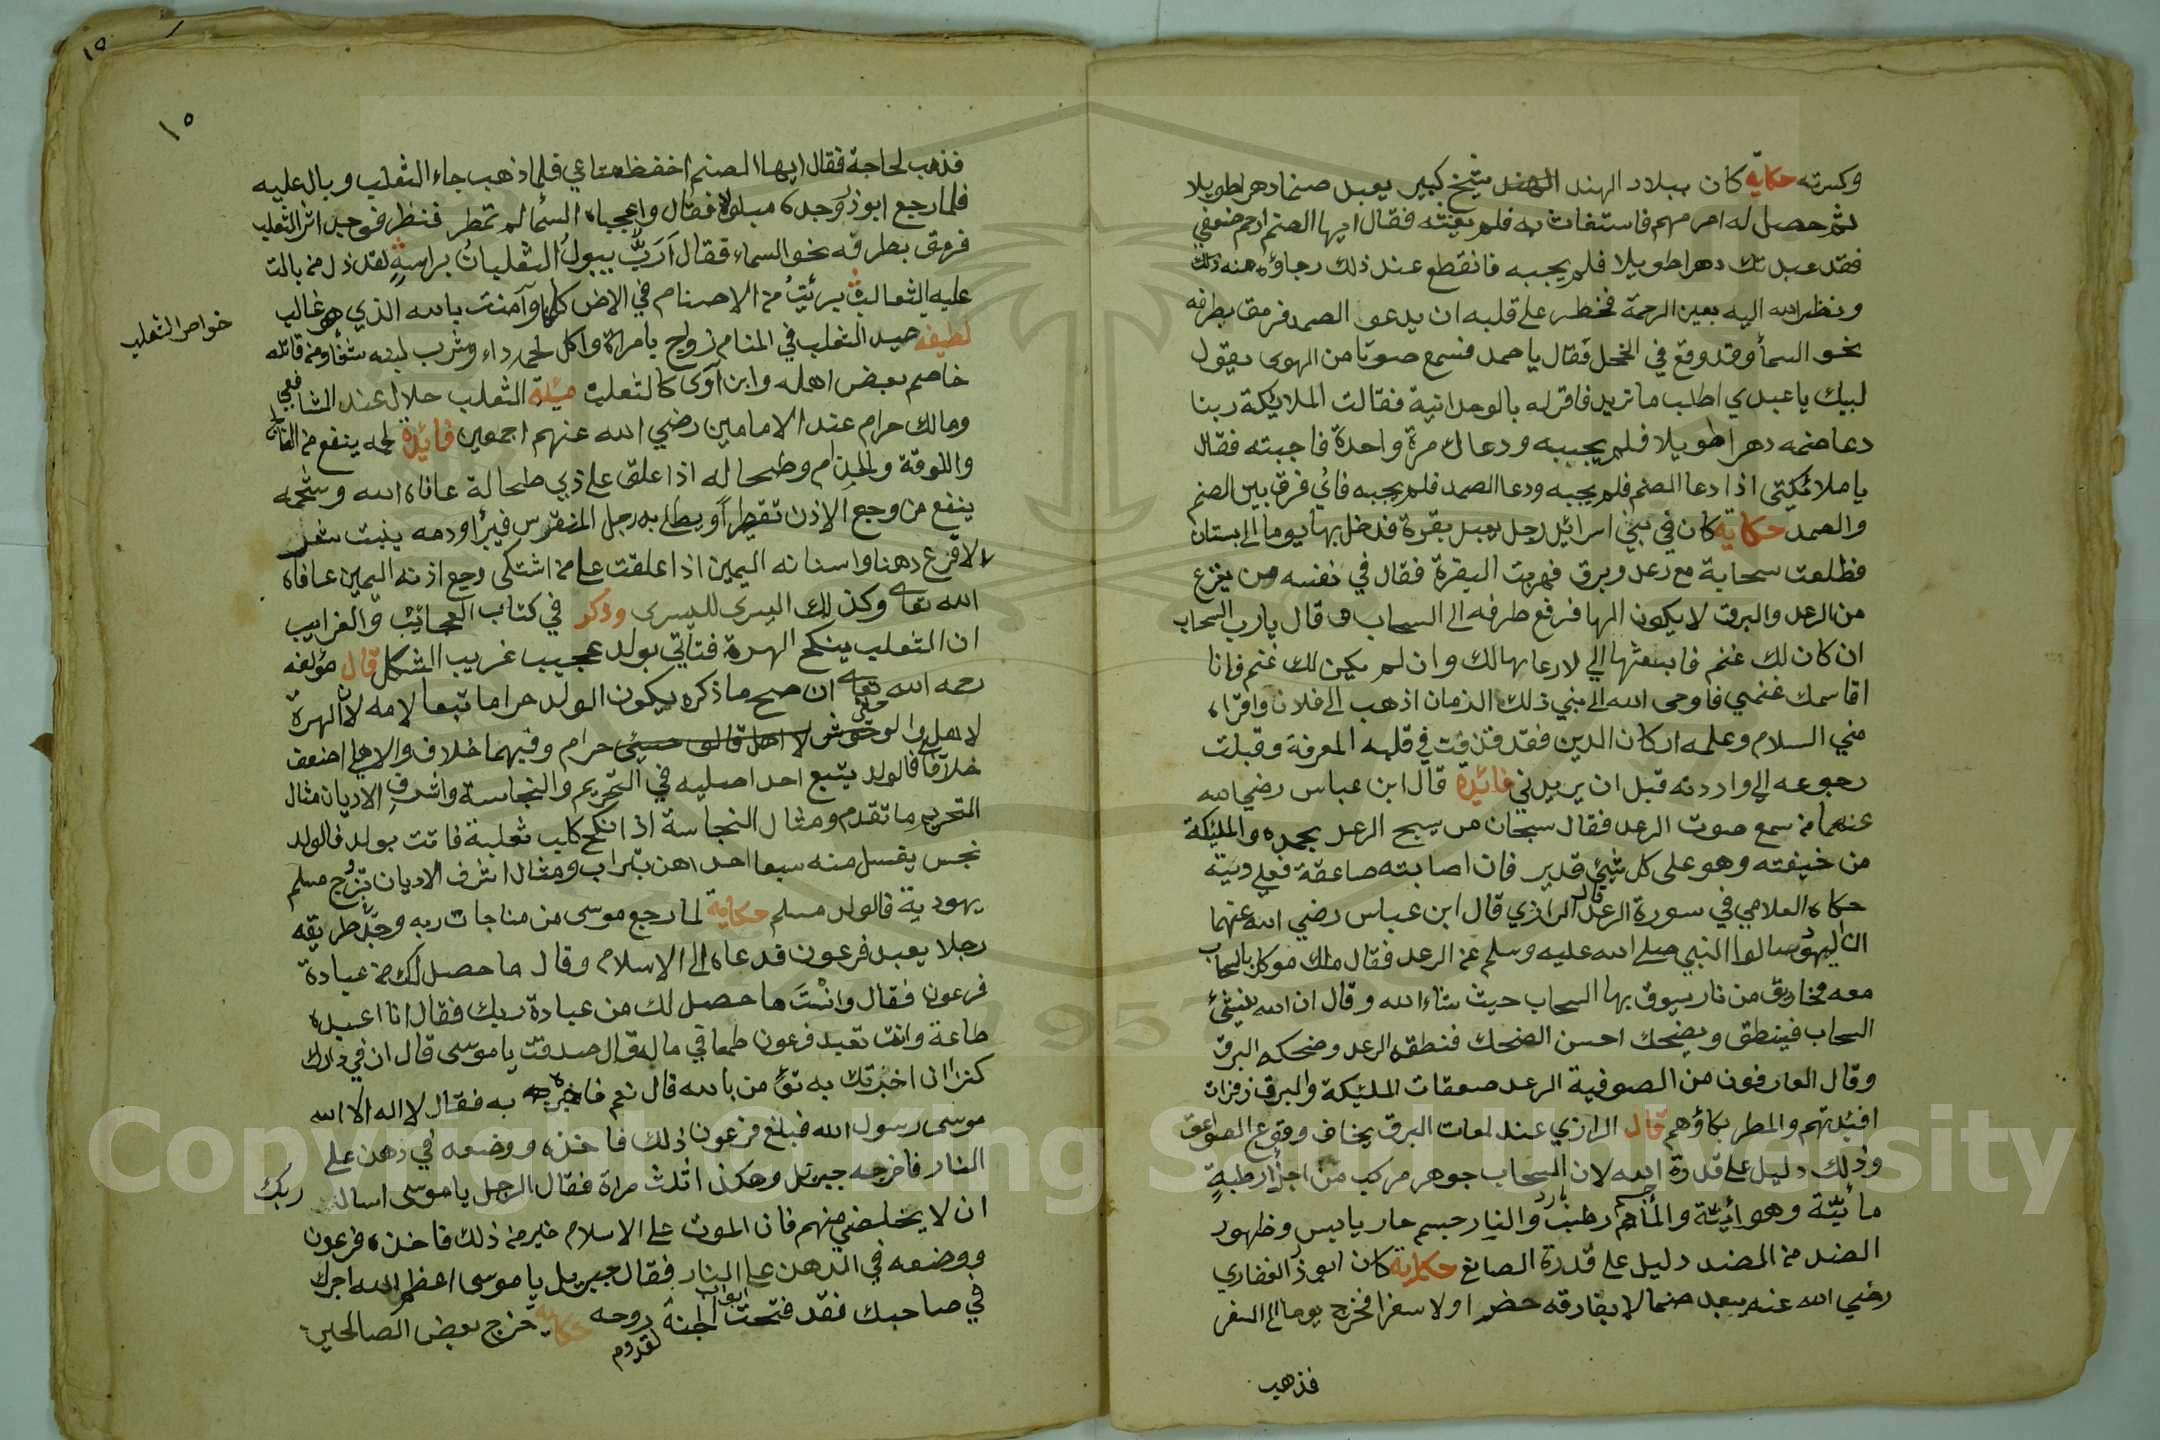 وكسرته حكاية كان ببلاد الهند شيخ كبير يعبد صنما دهرا طويلا
ثم حصل له امر مهم فاستغاث به فلم يغثه فقال ايها الصنم ارحم ضعفي
فقد عبدتك دهرا طويلا فلم يجبه فانقطع عند ذلك رجاؤه منه
ونظر الله اليه بعين الرحمة فخطر على قلبه ان يدعو الصمد فرمق بطرفه
نحو السمأ وقد وقع في الخجل فقال ياصمد فسمع صوتا من الهوى يقول
لبيك ياعبدي اطلب ما تريد فاقر له بالوحدانية فقالت الملايكة ربنا
دعا صنمه دهرا طويلا فلم يجيبه ودعاك مرة واحدة فاجبته فقال
ياملائكتي اذا دعا الصنم فلم يجبه ودعا الصمد فلم يجبه فاي فرق بين الصنم
والصمد حكاية كان في بني اسرائيل رجل يعبد بقرة فدخل بها يوما الى بستان
فطلعت سحابة مع رعد وبرق فهربت البقرة فقال في نفسه من يفزع
من الرعد والبرق لا يكون الها فرفع طرفه الى السحاب وقال يارب السحاب
ان كان لك غنم فابعثها الي لارعاها لك وان لم يكن لك غنم فانا
اقاسمك غنمي فاوحى الله الى نبي ذلك الزمان اذهب الى فلان واقراه
مني السلام وعلمه اركان الدين فقد قذفت في قلبه المعرفة وقبلت
رجوعه الي واردته قبل ان يريدني فائدة قال ابن عباس رضي الله
عنهما من سمع صوت الرعد فقال سبحان من يسبح الرعد بحمده والمليكة
من خيفته وهو على كل شئ قدير فان اصابته صاعقة فعلي ديته
حكاه العلامي في سورة الرعد قال الرازي قال ابن عباس رضي الله عنهما
ان اليهود سالوا النبي صلى الله عليه وسلم عن الرعد فقال ملك موكل بالسحاب
معه مخاريق من نار يسوق بها السحاب حيث شاء الله وقال ان الله ينشئ
السحاب فينطق ويضحك احسن الضحك فنطقه الرعد وضحكه البرق
وقال العارفون من الصوفية الرعد صعقات المليكة والبرق زفرات
افئدتهم والمطر بكاؤهم قال الرازي عند لمعات البرق يخاف وقوع الصواعق
وذلك دليل على قدرة الله لان السحاب جوهر مركب من اجزأ رطبة
مائية وهوائية والمأ جسم رطب بارد والنار جسم حار يابس وظهور
الضد من الضد دليل على قدرة الصانع حكاية كان ابوذر الغفاري
رضي الله عنه يعبد صنما لا يفارقه حضرا ولا سفرا فخرج يوما الى السفر
فذهب
١٥
١٥
فذهب لحاجة فقال ايها الصنم احفظ متاعي فلما ذهب جاء الثعلب وبال عليه
فلما رجع ابوذر وجده مبلولا فقال واعجباه السمأ لم تمطر فنظر فوجد اثر الثعلب
فرمق بطرفه نحو السماء فقال أرب يبول الثعلبان براسه لقد ذل من بالت
عليه الثعالب برئت من الاصنام في الارض كلها وآمنت بالله الذي هو غالب
لطيفه صيد الثعلب في المنام زواج بامراة واكل لحمه داء وشرب لبنه شفاء ومن قاتله
خواص الثعلب
خاصم بعض اهله وابن آوى كالثعلب مسئلة الثعلب حلال عند الشافعي
ومالك حرام عند الامامين رضي الله عنهم اجمعين فائدة لحمه ينفع من الفالج
واللوقة والجذام وطحاله اذا علق على ذي طحالة عافاه الله وشحمه
ينفع من وجع الاذن تقطيرا ويطلى به رجل المنقرس فيبرأ ودمه ينبت شعر
الاقرع دهنا واسنانه اليمين اذا علقت على من اشتكى وجع اذنه اليمين عافاه
الله تعالى وكذلك اليسرى لليسرى وذكر في كتاب العجائب والغرايب
ان الثعلب ينكح الهرة فتأتي بولد عجيب غريب الشكل قال مؤلفه
رحمه الله تعالى ان صح ما ذكره يكون الولد حراما تبعا لامه لان الهرة
حرام وفيهما خلاف والاهلي اضعف
خلافا فالولد يتبع احد اصليه في التحريم والنجاسة واشرف الاديان مثال
التحريم ما تقدم ومثال النجاسة اذا نكح كلب ثعلبة فاتت بولد فالولد
نجس يغسل منه سبعا احداهن بتراب ومثال اشرف الاديان تزوج مسلم
يهودية فالولد مسلم حكاية لما رجع موسى من مناجات ربه وجد بطريقه
رجلا يعبد فرعون فدعاه الى الاسلام وقال ما حصل لك من عبادة
فرعون فقال وانت ما حصل لك من عبادة ربك فقال انا اعبده
طاعة وانت تعبد فرعون طمعا في ماله قال صدقت ياموسى قال ان في دارك
كنزا ان اخبرتك به تؤمن بالله قال نعم فاخبره به فقال لا اله الا الله
موسى رسول الله فبلغ فرعون ذلك فاخذه ووضعه في دهن على
النار فاخرجه جبريل وهكذا ثلاث مراة فقال الرجل ياموسى اسال ربك
ان لا يخلصني منهم فان الموت على الاسلام خير من ذلك فاخذه فرعون
ووضعه في الدهن على النار فقال جبريل ياموسى اعظم الله اجرك
في صاحبك فقد فتحت ابواب الجنة لقدوم روحه حكاية خرج بعض الصالحين